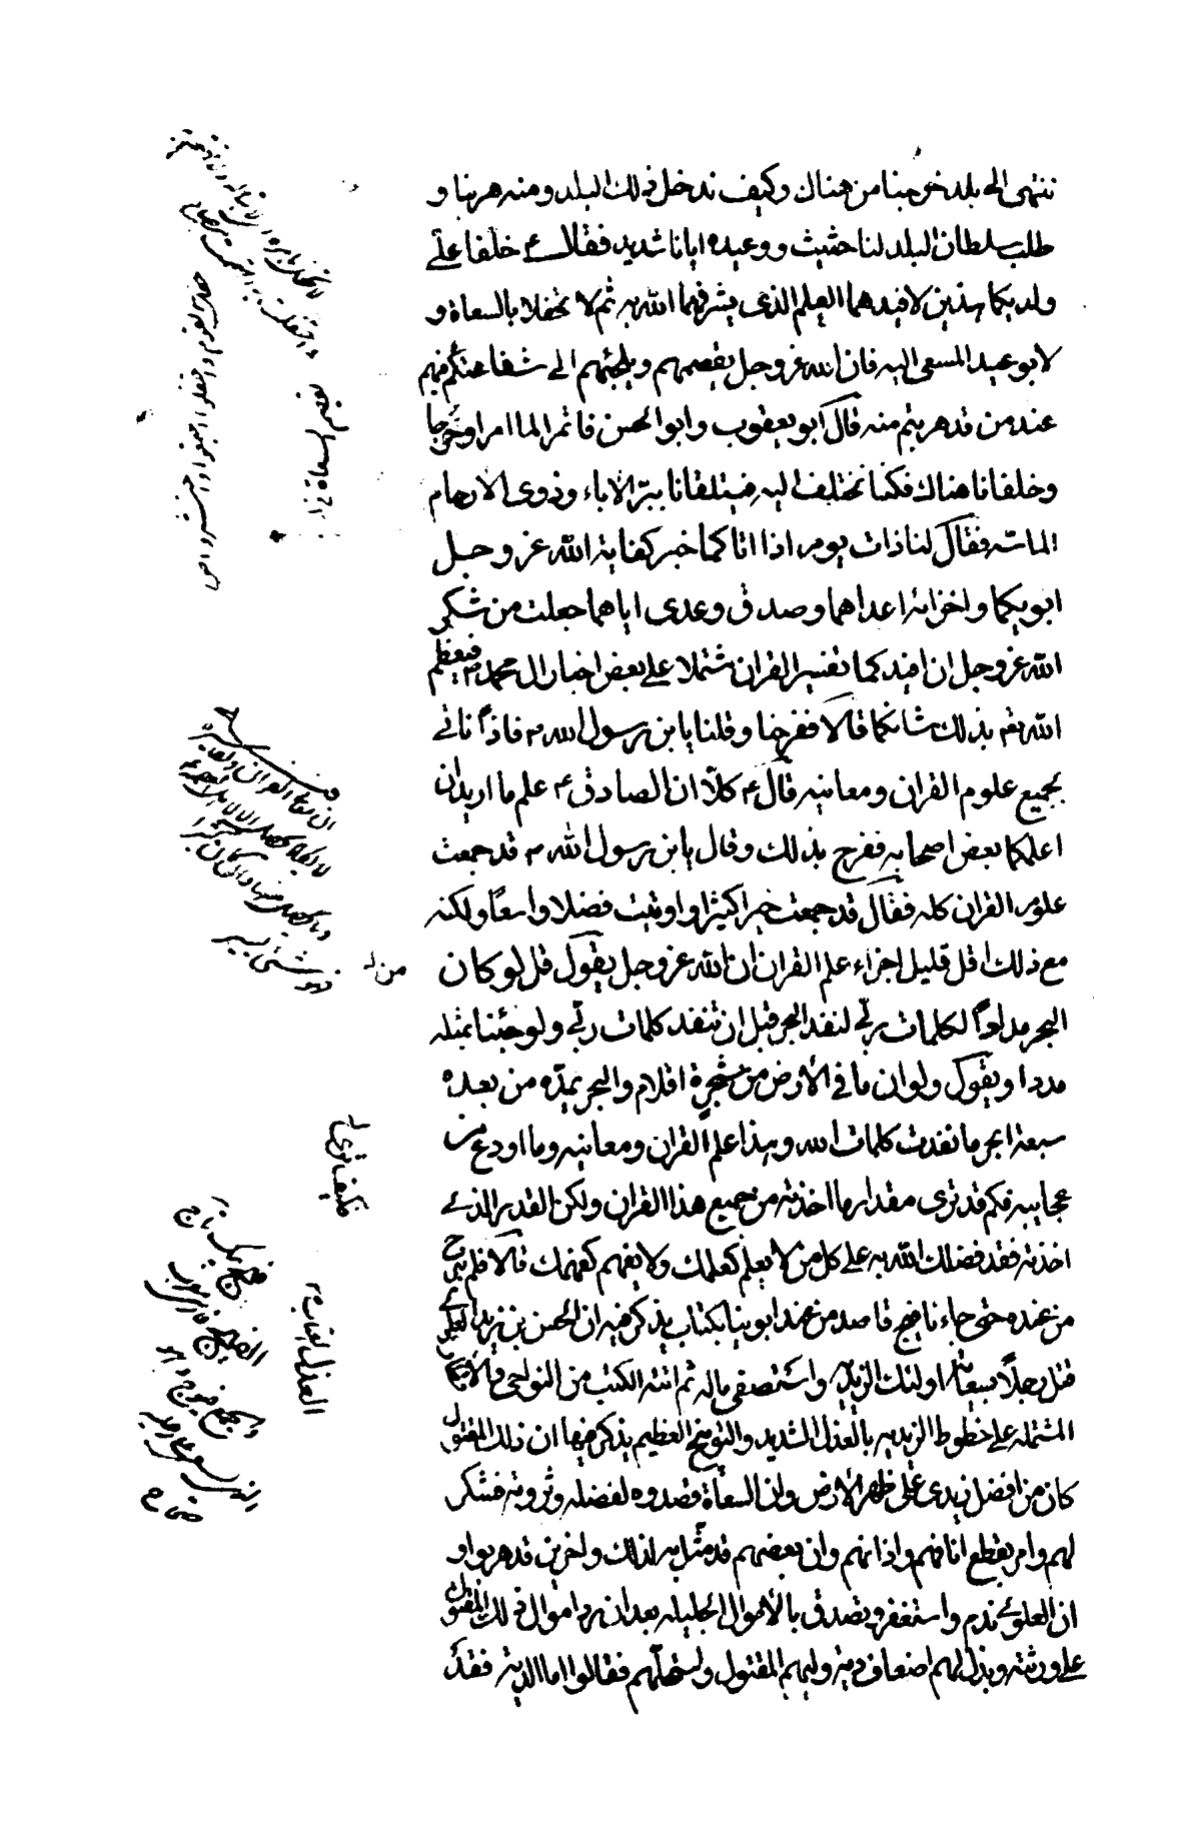 ننتهى الى بلد خرجنا من هناك وكيف ندخل ذلك البلد ومنه هربنا و
طلب سلطان البلد لنا حثيث ووعيده ايانا شديد فقال ع خلفا علىّ
ولديكما هذين لافيدهما العلم الذى يشرفهما الله به ثم لا تحفلا بالسعاة و
لا بوعيد المسعى اليه فان الله عز وجل يقصمهم ويلجئهم الى شفاعتكم فيهم
عند من قد هربتم منه قال ابو يعقوب وابو الحسن فائتمرا لما امرا وخرجا
وخلفانا هناك فكنا نختلف اليه فيتلقانا ببرّ الاباء وذوى الارحام
الماسّه فقال لنا ذات يوم اذا اتاكما خبر كفاية الله عز وجل
ابويكما واخزائه اعداهما وصدق وعدى اياهما جعلت من شكر
الله عز وجل ان افيدكما تفسير القران مشتملا على بعض اخبار ال محمد ص فيعظم
الله تعه بذلك شانكما قالا ففرحنا وقلنا يابن رسول الله ص فاذًا ناتى
بجميع علوم القران ومعانيه قال ع كلّا ان الصادق ع علم ما اريد ان
اعلمكما بعض اصحابه ففرح بذلك وقال يابن رسول الله ص قد جمعت
علوم القران كله فقال قد جمعت خيرا كثيرا واوتيت فضلا واسعًا ولكنه
مع ذلك اقل قليل اجزاء علم القران ان الله عز وجل يقول قل لو كان
البحر مدادًا لكلمات ربّى لنفد البحر قبل ان تنفد كلمات ربّى ولو جئنا بمثله
مددا ويقول ولو ان ما فى الأرض من شجرة اقلام والبحر يمدّه من بعده
سبعة ابحر ما نفدت كلمات الله وهذا علم القران ومعانيه وما اودع من
عجايبه فكم قد ترى مقدار ما اخذته من جميع هذا القران ولكن القدر الذى
اخذته فقد فضلك الله به على كل من لا يعلم كعلمك ولا يفهم كفهمك قالا فلم نبرح
من عنده حتى جاءنا فيج قاصد من عند ابوينا بكتاب يذكر فيه ان الحسن بن زيد العلوى
قتل رجلًا بسعاية اولئك الزيديه واستصفى ماله ثم اتته الكتب من النواحى والأقطار
المشتمله على خطوط الزيديه بالعذل الشديد والتوبيخ العظيم يذكر فيها ان ذلك المقتول
كان من افضل زيدى على ظهر الأرض وان السعاة قصدوه لفضله وثروته فشكر
لهم وامر بقطع انافهم واذانهم وان بعضهم قد مثّل به لذلك واخرين قد هربوا و
ان العلوى ندم واستغفر وتصدق بالأموال الجليله بعد ان رد اموال ذلك المقتول
على ورثته وبذل لهم اضعاف دية وليهم المقتول واستحلّهم فقالوا اما الدية فقد
من له
فكيف ترى له
العذل العتاب